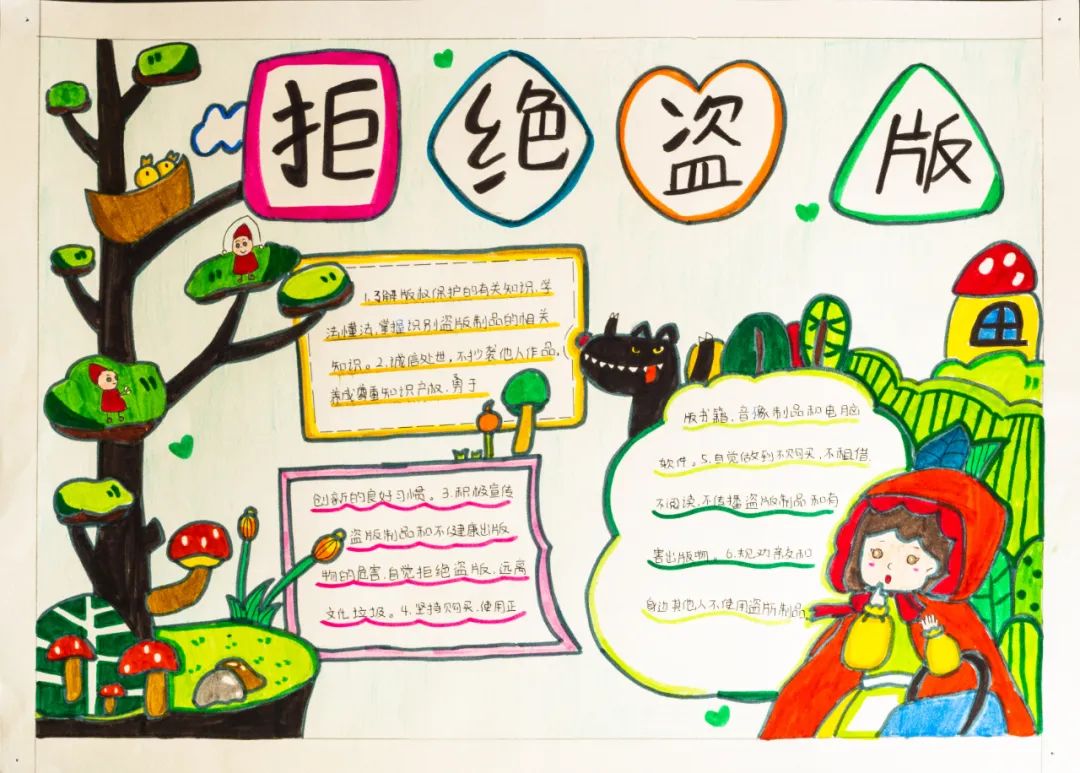 拒绝盗版
1.了解版权保护的有关知识、学
法懂法,掌握识别盗版制品的相关
知识。2.诚信处世,不抄袭他人作品,
养成尊重知识产权、勇于
创新的良好习惯。3.积极宣传
盗版制品和不健康出版
物的危害,自觉拒绝盗版、远离
文化垃圾。4.坚持购买、使用正
版书籍、音像制品和电脑
软件。5.自觉做到不购买,不租借
不阅读,不传播盗版制品和有
害出版物。6.规劝亲友和
身边其他人不使用盗版制品。